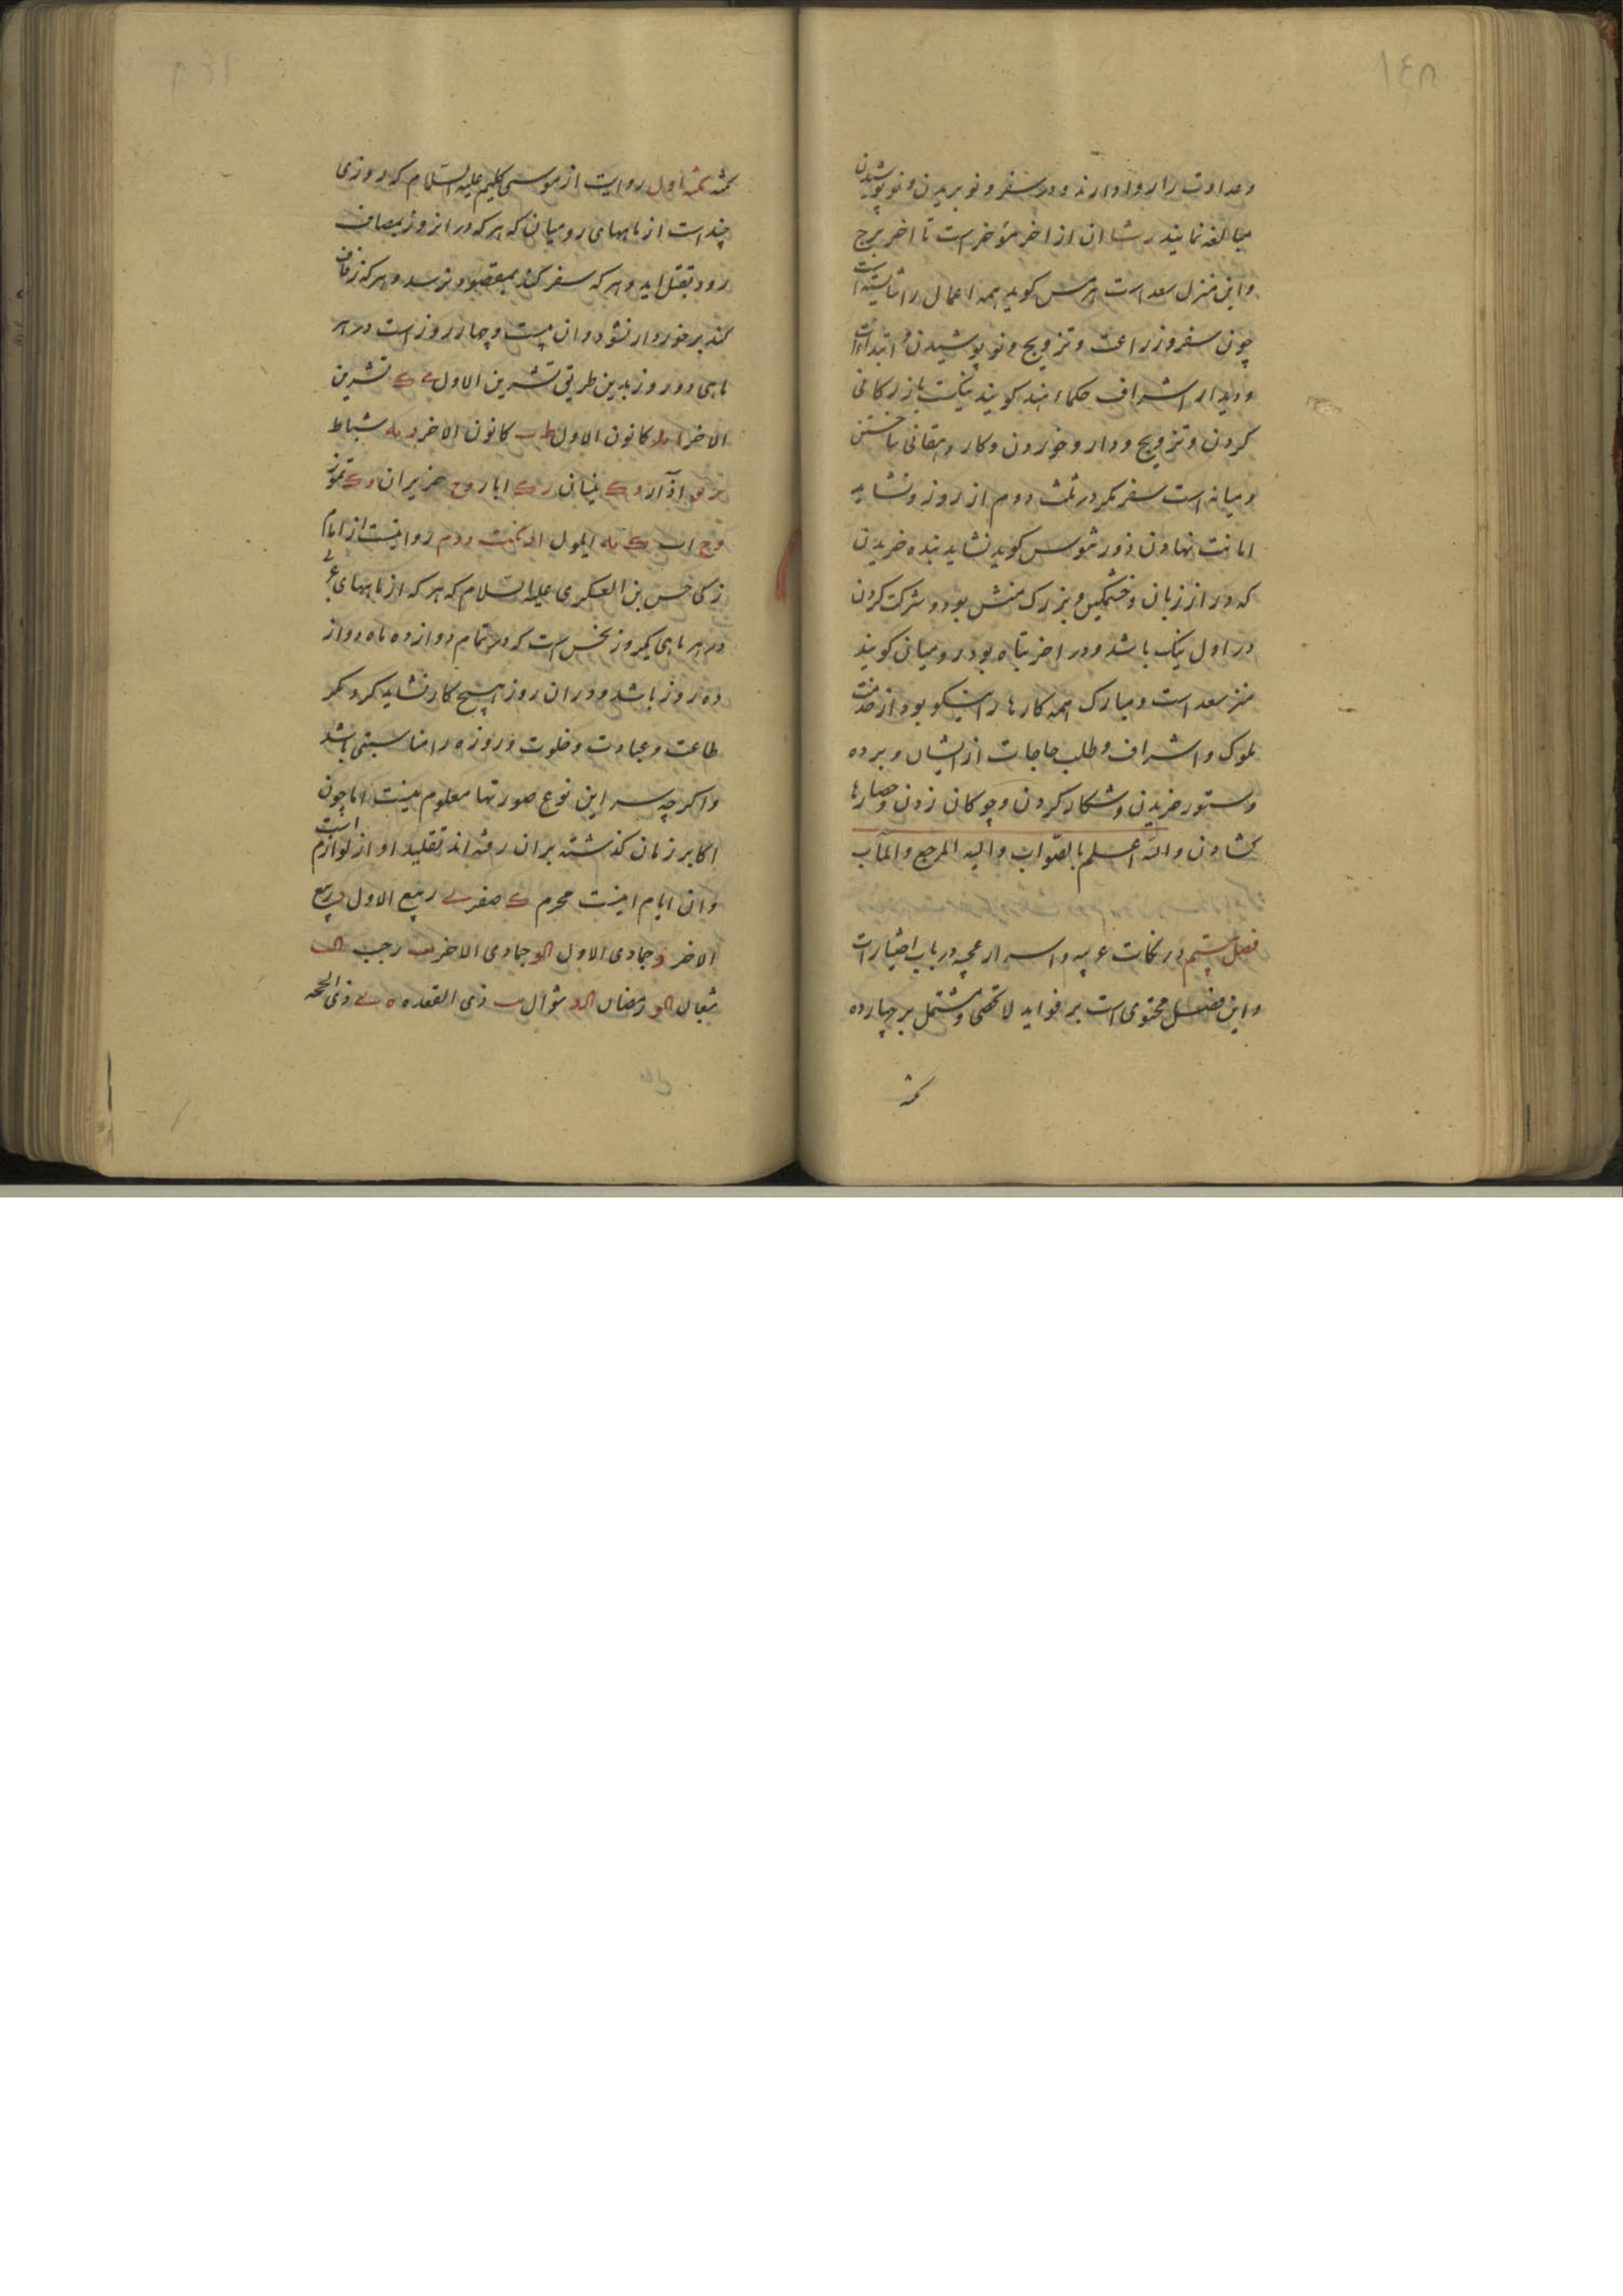 ١٤٨
وعداوت را روا دارند ودر سفر ونو بریدن ونو پوشیدن
مبالغه نمایند رشا ان از اخر مؤخر است تا اخر برج
واین منزل سعد است هرمس کوید همه اعمال را شایسته است
چون سفر وزراعت وتزویج ونو پوشیدن و ابتداات
ودیدار اشراف حکماء هند کویند نیکست بازرکانی
کردن وتزویج ودارو خوردن وکار دهقانی ساختن
ومیانه است سفر مکر در ثلث دوم از روز ونشاید
امانت نهادن ذورثیوس کوید نشاید بنده خریدن
که دراز زبان وخشمکین وبزرک منش بود وشرکت کردن
در اول نیک باشد ودر اخر تباه بود رومیان کویند
منزل سعد است ومبارک همه کارها را نیکو بود از خدمت
ملوک واشراف وطلب حاجات از ایشان وبرده
وستور خریدن وشکار کردن وچوکان زدن وحصارها
کشادن والله اعلم بالصواب والیه المرجع والمآب
فصل ششم در نکات غریبه واسرار عجیبه در باب اختیارات
واین فصل محتوی است بر فواید لا تحصی ومشتمل بر چهارده
نکته
١٤٩
نکته نکته اول روایت از موسی کلیم علیه السلام که روزی
چند است از ماههای رومیان که هر که در انروز بمصاف
رود بقتل اید وهر که سفر کند بمقصود نرسد وهر که زفاف
کند برخوردار نشود وان بیست وچهار روز است در هر
ماهی دو روز بدین طریق تشرین الاول ک تشرین
الاخر کانون الاول کانون الاخر شباط
اذآر نیسان ایار حزیران تموز
اب ایلول نکته دوم روایتست از امام
زکی حسن بن العسکری علیه السلام که هر که از ماههای
در هر ماهی یکروز نحس است که در تمام دوازده ماه دوازده
ده روز باشد ودر ان روز هیچ کار نشاید کرد مکر
طاعت وعبادت وخلوت وروزه را مناسبتی باشد
واکر چه سر این نوع صورتها معلوم نیست اما چون
اکابر زمان کذشته بران رفته اند تقلید او از لوازم است
وان ایام اینست محرم صفر ربیع الاول ربیع
الاخر جمادی الاول جمادی الاخر رجب
شعبان رمضان شوال ذی القعده ذی الحجه